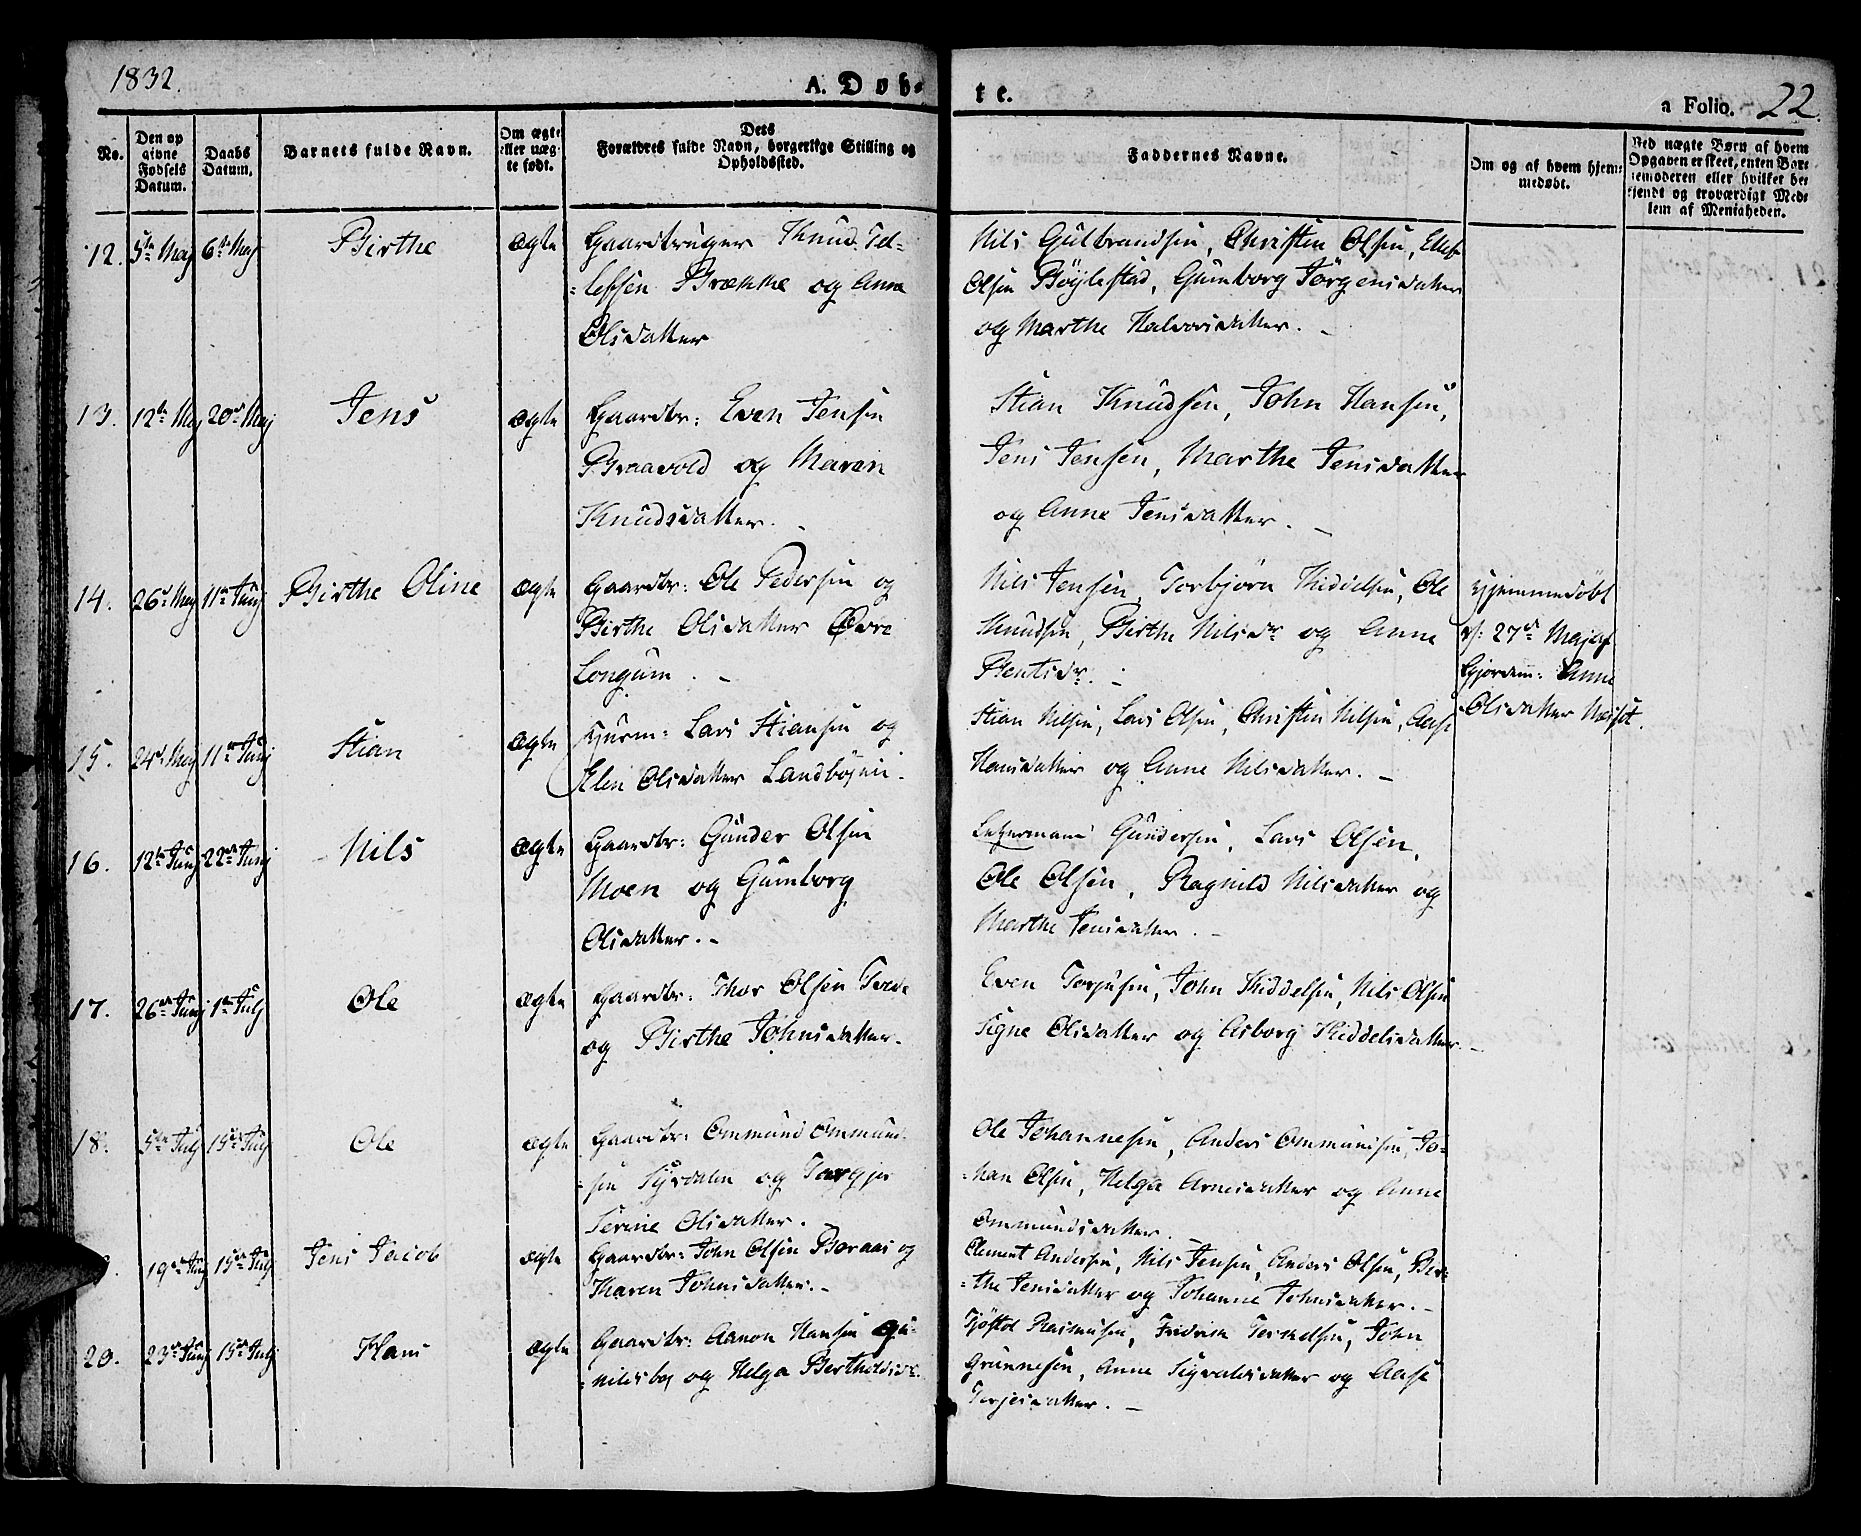 1832.
A. Døb-
te.
a Folio. 22.
No.
Den opgivne Fødsels Datum.
Daabs Datum.
Barnets fulde Navn.
Om ægte eller uægte født.
Dets Forældres fulde Navn, borgerlige Stilling og Opholdssted.
Faddernes Navne.
Om og af hvem hjemmedøbt.
Ved uægte Børn af hvem Opgaven er skeet, enten Barnemoderen eller hvilket bekjendt og troværdigt Medlem af Menigheden.
12. 5te Maj 6te Maj Birthe ægte Gaardbruger Knud Tel-
=lefsen Brække og Anne
Olsdatter
Nils Gulbrandsen, Christen Olsen, Elef
Olsen Bøylestad, Gumborg Jørgensdatter
og Marthe Halvorsdatter. -
13. 12te Maj 20de Maj Jens ægte Gaardbr: Even Jensen
Braavold og Maren
Knudsdatter. -
Stian Knudsen, John Hansen,
Jens Jensen, Marthe Jensdatter
og Anne Jensdatter. -
14. 26de Maj 11te Junj Birthe Oline ægte Gaardbr: Ole Pedersen og
Birthe Olsdatter Øvre
Longum. -
Nils Jensen, Torbjørn Kiddelsen, Ole
Knudsen, Birthe Nilsdr og Anne
Bentsdr. -
Hjemmedøbt
d: 27de Maj af
Gjordem: Anne
Olsdatter Næsset.
15. 24de Maj 11te Junj Stian ægte Huusm: Lars Stiansen og
Elen Olsdatter Landbøjen.
Stian Nilsen, Lars Olsen, Christen Nilsen, Aase
Hansdatter og Anne Nilsdatter. -
16. 12te Junj 22de Junj Nils ægte Gaardbr: Gunder Olsen
Moen og Gumborg
Olsdatter. -
Gundersen, Lars Olsen,
Ole Olsen, Ragnild Nilsdatter og
Marthe Jensdatter. -
17. 26de Junj 1te Julj Ole ægte Gaardbr: Thor Olsen Tvede
og Birthe Johnsdatter.
Even Torjusen, John Kiddelsen, Nils Olsen
Signe Olsdatter og Asborg Kiddelsdatter. -
18. 5te Julj 15de Julj Ole ægte Gaardbr: Ommund Ommund-
=sen Syrdalen og Torgjer
Serine Olsdatter.
Ole Johannesen, Anders Ommundsen, Jo-
=han Olsen, Helga Arnesdatter og Anne
Ommundsdatter.
19de Junj 15de Julj Jens Jacob ægte Gaardbr: John Olsen Boraas og
Maren Johnsdatter. -
Clement Andersen, Nils Jensen, Anders Olsen, Bir-
=the Jensdatter og Johanne Johnsdatter. -
20. 23de Junj 15de Julj Hans ægte Gaardbr: Aanon Hansen Gu-
=nildsboe og Helga Bertholdsdr.
Tjøstol Rasmusen, Fridrik Terkelsen, John
Grunnesen, Anne Sigvaldsdatter og Aase
Terjesdatter. -